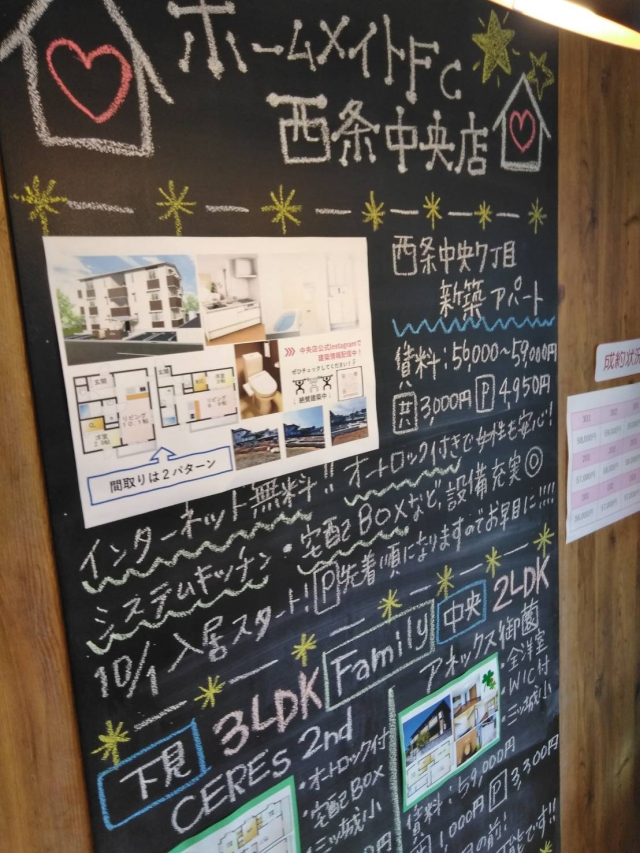 ホームメイトFC
西条中央店
西条中央7丁目
新築アパート
賃料:56,000~59,000円
共3,000円 P 4,950円
中央店公式Instagramで
建築情報配信中!
ぜひチェックしてください!
絶賛建築中
玄関
玄関
リビング
リビング
洋室
間取りは2パターン
インターネット無料!! オートロック付きで女性も安心!
システムキッチン・宅配BOXなど、設備充実◎
10/1入居スタート! P先着順になりますのでお早目に!!!!
成約状況
下見 3LDK Family 中央 2LDK
CEREs 2nd
・オートロック付
・宅配BOX
・三ッ城小
アネックス御薗
・全洋室
・WIC付
・三ッ城小
賃料:59,000円
1,000円 P 3,300円